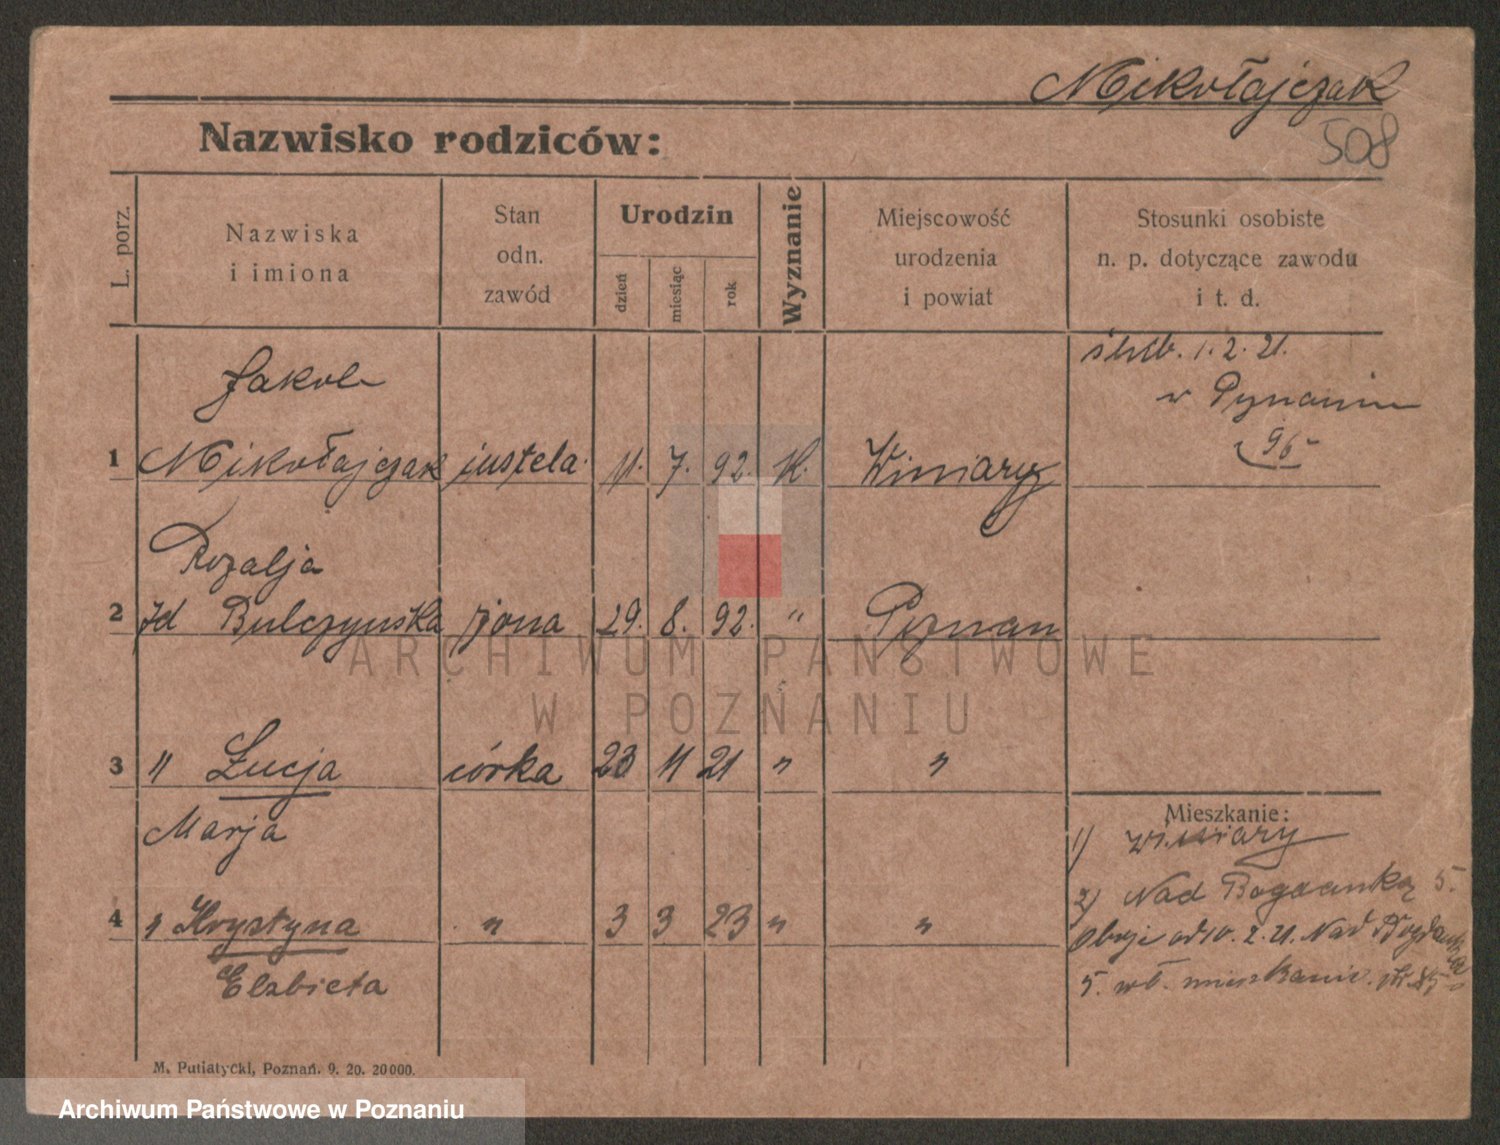 Mikołajczak
508
Nazwisko rodziców:
L. porz.
Nazwiska
i imiona
Stan
odn.
zawód
Urodzin
dzień
miesiąc
rok
Wyznanie
Miejscowość
urodzenia
i powiat
Stosunki osobiste
n. p. dotyczące zawodu
i t. d.
ślub. 1. 2. 21.
w
96
Jakob
1 Mikołajczak 11. 7. 92. K. Winiary
Rozalja
2 Bulczyńska żona 29. 8. 92. " Poznan
3 " Łucja córka 23 11 21 " "
Marja
4 " Krystyna " 3 3 23 " "
Elzbieta
Mieszkanie:
1) Winiary
2) Nad Bogdanką 5.
od 10. 2. 21. Nad
5. wł. mieszkanie.
M. Putiatycki, Poznań. 9. 20. 20000.
ARCHIWUM PAŃSTWOWE
W POZNANIU
Archiwum Państwowe w Poznaniu